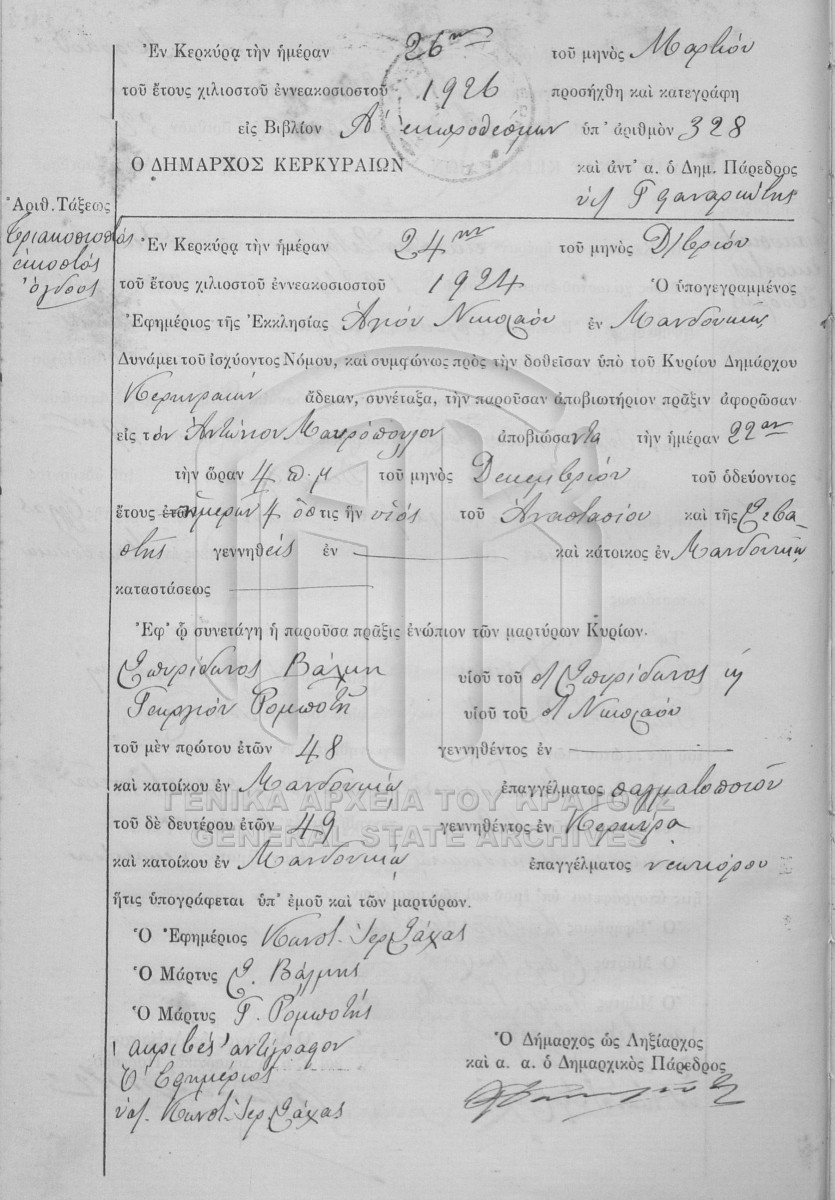 Ἐν Κερκύρᾳ τὴν ἡμέραν 26ην τοῦ μηνὸς Μαρτίου
τοῦ ἔτους χιλιοστοῦ ἐννεακοσιοστοῦ 1926 προσήχθη καὶ κατεγράφη
εἰς Βιβλίον Α' ἐκπροθέσμων ὑπ' ἀριθμὸν 328
Ο ΔΗΜΑΡΧΟΣ ΚΕΡΚΥΡΑΙΩΝ καὶ ἀντ' α. ὁ Δημ. Πάρεδρος
Ἀριθ. Τάξεως
τριακοσιοστός
εἰκοστός
ὄγδοος
Ἐν Κερκύρᾳ τὴν ἡμέραν 24ην τοῦ μηνὸς Δ/βρίου
τοῦ ἔτους χιλιοστοῦ ἐννεακοσιοστοῦ 1924 Ὁ ὑπογεγραμμένος
Ἐφημέριος τῆς Ἐκκλησίας Ἁγίου Νικολάου ἐν Μανδουκίῳ
Δυνάμει τοῦ ἰσχύοντος Νόμου, καὶ συμφώνως πρὸς τὴν δοθεῖσαν ὑπὸ τοῦ Κυρίου Δημάρχου
Κερκυραίων ἄδειαν, συνέταξα, τὴν παροῦσαν ἀποβιωτήριον πρᾶξιν ἀφορῶσαν
εἰς τὸν Ἀντώνιον Μαυρόπουλον ἀποβιώσαντα τὴν ἡμέραν 22αν
τὴν ὥραν 4 π.μ τοῦ μηνὸς Δεκεμβρίου τοῦ ὁδεύοντος
ἔτους ἐτῶν ἡμερῶν 4 ὅστις ἦν υἱός τοῦ Ἀναστασίου καὶ τῆς Σεβα-
στῆς γεννηθείς ἐν καὶ κάτοικος ἐν Μανδουκίῳ
καταστάσεως
Ἐφ' ᾧ συνετάγη ἡ παροῦσα πρᾶξις ἐνώπιον τῶν μαρτύρων Κυρίων.
Σπυρίδωνος Βάλμη υἱοῦ τοῦ Σπυρίδωνος
Γεωργίου Ρομποτῆ υἱοῦ τοῦ Νικολάου
τοῦ μὲν πρώτου ἐτῶν 48 γεννηθέντος ἐν
καὶ κατοίκου ἐν Μανδουκίῳ ἐπαγγέλματος σαγματοποιοῦ
τοῦ δὲ δευτέρου ἐτῶν 49 γεννηθέντος ἐν Κερκύρᾳ
καὶ κατοίκου ἐν Μανδουκίῳ ἐπαγγέλματος νεωκόρου
ἥτις ὑπογράφεται ὑπ' ἐμοῦ καὶ τῶν μαρτύρων.
Ὁ Ἐφημέριος Κωνστ. Ἱερ. Σάχας
Ὁ Μάρτυς Σ. Βάλμης
Ὁ Μάρτυς Γ. Ρομποτής
ἀκριβές ἀντίγραφον
Ὁ Ἐφημέριος
Κωνστ. Ἱερ. Σάχας
Ὁ Δήμαρχος ὡς Ληξίαρχος
καὶ α. α. ὁ Δημαρχικὸς Πάρεδρος
ΓΕΝΙΚΑ ΑΡΧΕΙΑ ΤΟΥ ΚΡΑΤΟΥΣ
GENERAL STATE ARCHIVES